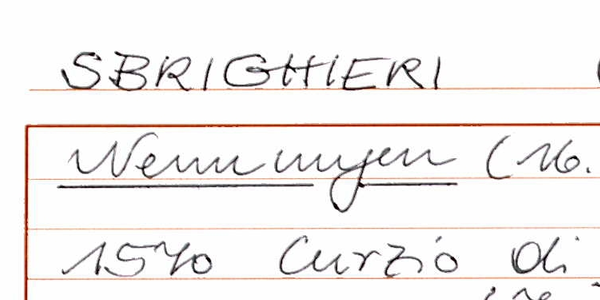 SBRIGHIERI (
Nennungen (16.
1570 Curzio di